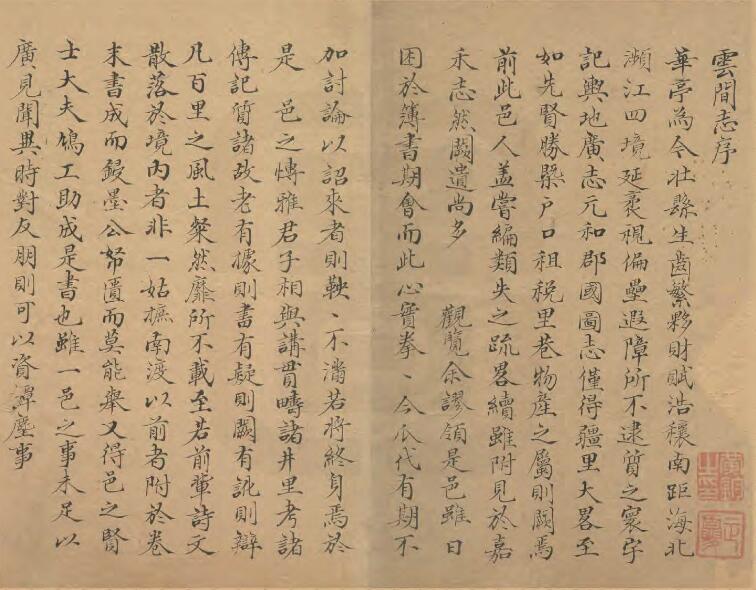 雲間志序
華亭為今壯縣生齒繁夥財賦浩穰南距海北
瀕江四境延袤視偏壘遐障所不逮質之寰宇
記輿地廣志元和郡國圖志僅得疆里大畧至
如先賢勝槩户口租税里巷物產之屬則闕焉
前此邑人蓋嘗編類失之疏畧續雖附見於嘉
禾志然闕遺尚多　觀覽余謬領是邑雖日
困於簿書期會而此心實拳〻今瓜代有期不
加討論以詔來者則鞅〻不滿若將終身焉於
是　邑之愽雅君子相與講貫疇諸井里考諸
傳記質諸故老有據則書有疑則闕有訛則辯
凡百里之風土粲然靡所不載至若前輩詩文
散落於境内者非一姑摭南渡以前者附於卷
末書成而鋟墨公帑匱而莫能舉又得邑之賢
士大夫鳩工助成是書也雖一邑之事未足以
廣見聞異時對友朋則可以資譚麈事